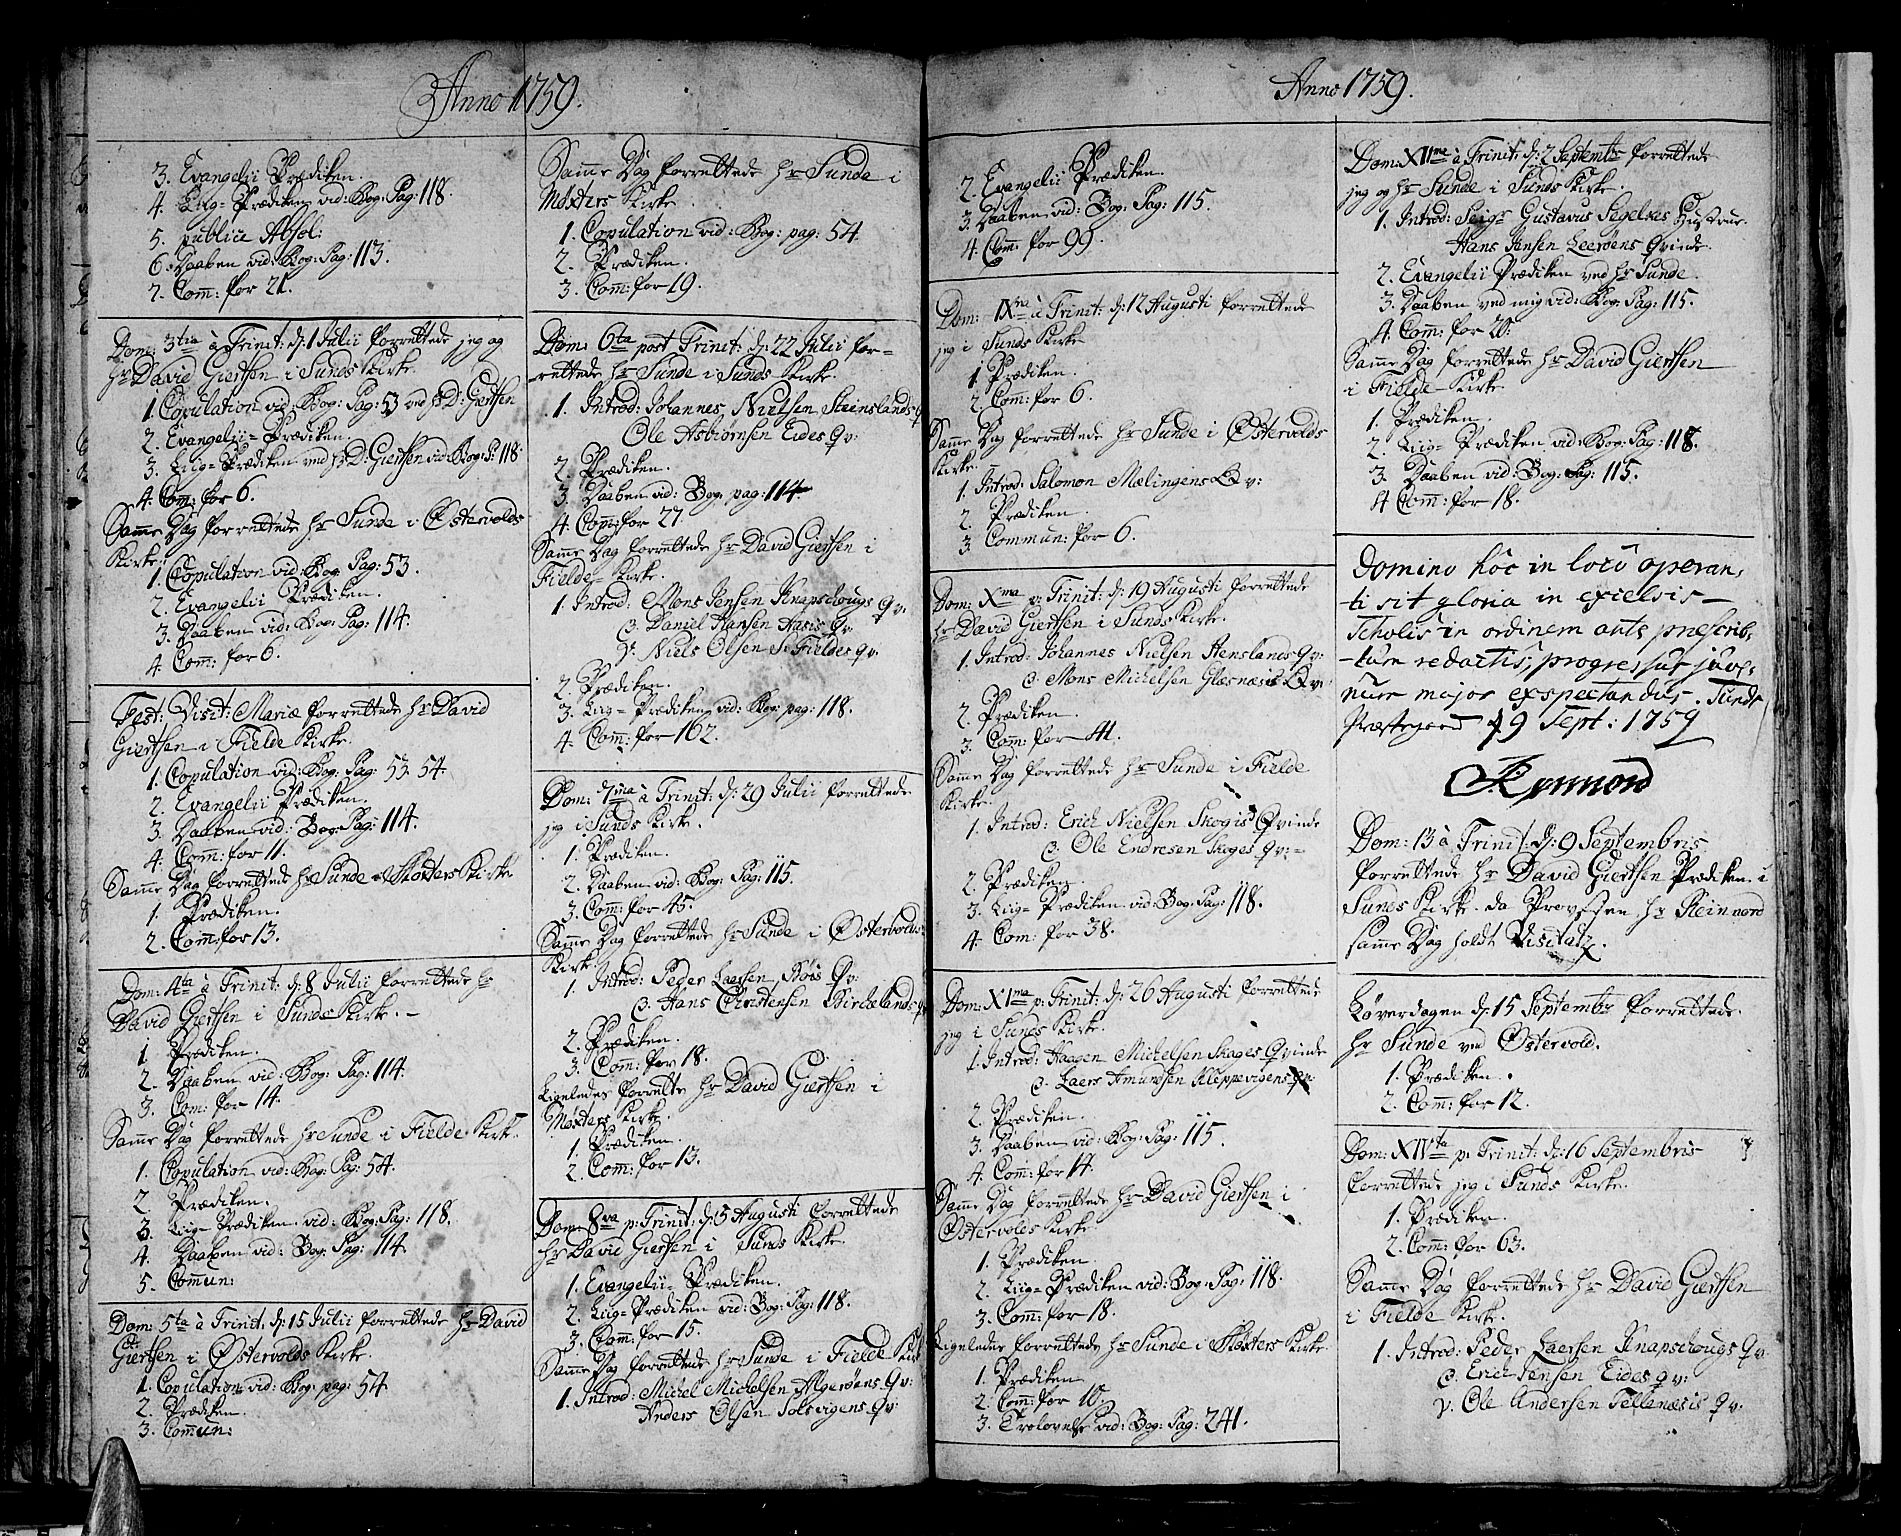 Anno 1759.
3. Evangelii Prædiken.
4. Liig-Prædiken vid: Bog: Pag: 118.
5. publicè Absol:
6. Daaben vid: Bog: Pag: 113.
7. Com̄: for 21.
Dom: 3tia à Trinit: d: 1 Julii forrettede jeg og
hr David Giertsen i Sunds Kirke.
1. Copulation vid: Bog: Pag: 53 ved hr D: Giertsen
2. Evangelii-Prædiken.
3. Liig-Prædiken ved hr D: Giertsen vid: Bog: P: 118
4. Com̄: for 6.
Sam̄e Dag forrettede hr Sunde i Østervolds
Kirke.
1. Copulation vid: Bog: Pag: 53.
2. Evangelii Prædiken.
3. Daaben vid: Bog: Pag: 114.
4. Com̄: for 6.
Fest: Visit: Mariæ forrettede hr David
Giertsen i Fielde Kirke.
1. Copulation vid: Bog: Pag: 53. 54.
2. Evangelii Prædiken.
3. Daaben vid: Bog: Pag: 114.
4. Com̄: for 11.
Sam̄e Dag forrettede hr Sunde i Møxters Kirke
1. Prædiken.
2. Com̄: for 13.
Dom: 4ta à Trinit: d: 8 Julii forrettede hr
David Giertsen i Sunds Kirke.
1. Prædiken.
2. Daaben vid: Bog: Pag: 114.
3. Com: for 14.
Sam̄e Dag forrettede hr Sunde i Fielde Kirk.
1. Copulation vid: Bog: Pag: 54.
2. Prædiken.
3. Liig-Prædiken. vid: Bog: Pag: 118.
4. Daaben vid: Bog: Pag: 114
5. Com̄un:
Dom: 5ta à Trinit: d: 15 Julii forrettede hr David
Giertsen i Østervolds Kirke.
1. Copulation vid: Bog: pag: 54
2. Prædiken.
3. Com̄un:
Sam̄e Dag forrettede hr Sunde i
Møxters Kirke
1. Copulation vid: Bog: pag: 54.
2. Prædiken.
3. Com̄: for 19.
Dom: 6ta post Trinit: d: 22 Julii for-
rettede hr Sunde i Sunds Kirke.
1. Introd: Johannes Nielsen Steinslands q
Ole Asbiørnsen Eides qv:
2. Prædiken.
3. Daaben vid: Bog: pag: 114
4. Com̄: for 27.
Sam̄e Dag forrettede hr David Giertsen i
Fielde Kirke.
1. Introd: Mons Jensen Knapschougs qv:
Daniel Hansen Hasis qv:
Niels Olsen S: Fieldes qv:
2. Prædiken.
3. Liig-Prædiken vid: Bog: pag: 118.
4. Com̄: for 162.
Dom: 7ma à Trinit: d: 29 Julii forrettede
jeg i Sunds Kirke.
1. Prædiken.
2. Daaben vid: Bog: Pag: 115.
3. Com̄: for 45.
Sam̄e Dag forrettede hr Sunde i Østervolds
Kirke.
1. Introd: Peder Laersen Bøis Qv:
Hans Christensen Birkelands qv
2. Prædiken.
3. Com̄: for 18.
Ligeledes forrette hr David Giertsen i
Møxters Kirke
1. Prædiken.
2. Com: for 13.
Dom: 8va p: Trinit: d: 5 Augusti forrettede
hr David Giertsen i Sunds Kirke
1. Evangelii-Prædiken.
2. Liig-Prædiken vid: Bog: Pag: 118.
3. Com̄: for 15.
Sam̄e Dag forrettede hr Sunde i Fielde Kirk
1. Introd: Michel Michelsen Algerøens Qv:
Anders Olsen Solsvigens qv:
Anno 1759.
2. Evangelii Prædiken.
3. Daaben vid: Bog: Pag: 115.
4. Com̄: for 99.
Dom: IXna à Trinit: d: 12 Augusti forrettede
jeg i Sunds Kirke
1. Prædiken.
2. Com: for 6.
Sam̄e Dag forrettede hr Sunde i Østervolds
Kirke.
1. Introd: Salomon Mælingens Qv:
2. Prædiken.
3. Commun: for 6.
Dom: Xma p: Trinit: d: 19 Augusti forrettede
hr David Giertsen i Sunds Kirke.
1. Introd: Johannes Nielsen Stenslands qv:
Mons Michelsen Glæsnæsis Qv:
2. Prædiken.
3. Com̄: for 41.
Sam̄e Dag forrettede hr Sunde i Fielde
Kirke.
1. Introd: Erich Nielsen Skogis Qvinde
Ole Endresen Skoges qv:
2. Prædiken.
3. Liig-Prædiken vid: Bog: Pag: 118.
4. Com: for 38.
Dom: XIma p: Trinit: d: 26 Augusti forrettede
jeg i Sunds Kirke.
1. Introd: Haagen Michelsen Skoges Qvinde
Laers Amundsen Kleppevigens qv:
2. Prædiken.
3. Daaben vid: Bog: Pag: 115.
4. Com̄: for 14.
Sam̄e Dag forrettede hr David Giertsen i
Østervolds Kirke.
1. Prædiken.
2. Liig-Prædiken vid: Bog: Pag: 118.
3. Com̄: for 18.
Ligeledes forrettede hr Sunde i Møxters Kirke
1. Prædiken
2. Com̄: for 10.
3. Trolovelse vid: Bog: Pag: 241.
Dom: XIIma à Trinit: d: 2 Septembr forrettede
jeg og hr Sunde i Sunds Kirke.
1. Introd: Seigr Gustavus Segelkes Hustrue.
Hans Jensen Leerøens Qvinde.
2. Evangelii Prædiken ved hr Sunde.
3. Daaben ved mig vid: Bog: Pag: 115.
4. Com̄: for 20.
Sam̄e Dag forrettede hr David Giertsen
i Fielde Kirke
1. Prædiken.
2. Liig-Prædiken vid: Bog: Pag: 118.
3. Daaben vid: Bog: Pag: 115.
4 Com̄: for 18.
Domino hoc in loco operan,
ti sit gloria in excelsis
Scholis in ordinem ante prescrib,
tum redactis, progressus juve,
num major exspectandus. Sunds
Præstegaard d 9 Sept: 1759
Dom: 13 à Trinit: d: 9 Septembris
forrettede hr David Giertsen Prædiken i
Sunds Kirke da Provsten hr Steinnord
sam̄e Dag holdt Visitatz.
Løverdagen d: 15 Septembr forrettede
hr Sunde ved Østervold.
1. Prædiken.
2. Com̄: for 12.
Dom: XIVta p: Trinit: d: 16 Septembris
forrettede jeg i Sunds Kirke.
1. Prædiken
2. Com̄: for 63.
Sam̄e Dag forrettede hr David Giertsen
i Fielde Kirke.
1. Introd: Peder Laersen Knapschougs Qv:
Erich Jensen Eides qv:
Ole Andersen Tellenæsis Qv: